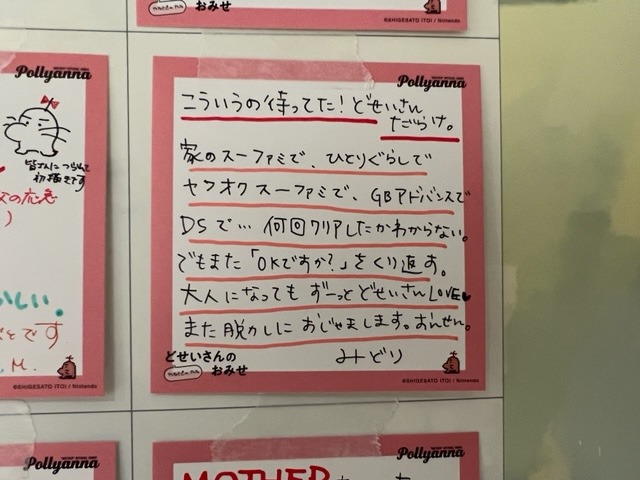 おみせ
©SHIGESATO ITOI / Nintendo
Pollyanna
皆さんにつられて
初描きです
の応急
)
いしい.
とです
.M.
©SHIGESATO ITOI / Nintendo
Pollyanna
こういうの待ってた!どせいさん
だらけ。
家のスーファミで、ひとりぐらしで
ヤフオクスーファミで、GBアドバンスで
DSで…何回クリアしたかわからない。
でもまた「OKですか?」をくり返す。
大人になっても ずーっと どせいさんLOVE♥
また脱かしに おじゃまします。おんせん。
みどり
どせいさんの
おみせ
©SHIGESATO ITOI / Nintendo
Pollyanna
Pollyanna
MOTHER